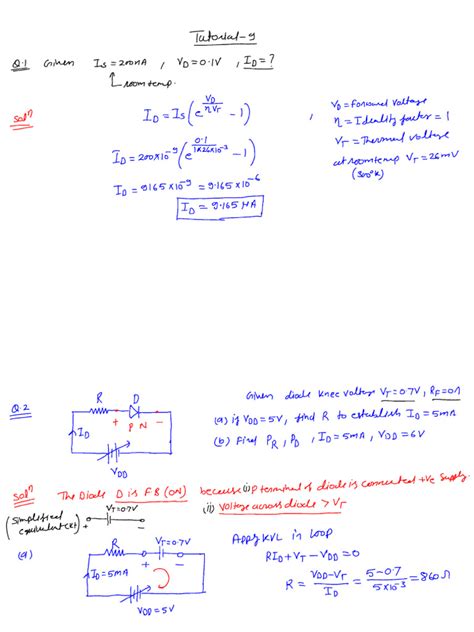 Tutorial-9
Q.1 Given Is = 200nA , VD = 0.1V , ID = ?
room temp.
Solⁿ
ID = Is (e^(VD/ηVT) - 1)
ID = 200×10^-9 (e^(0.1/(1×26×10^-3)) - 1)
ID = 9165×10^-9 = 9.165×10^-6
ID = 9.165 μA
, VD = Forward Voltage
η = Ideality factor = 1
VT = Thermal voltage
at room temp VT = 26mV
(300°K)
Q.2
R D
+ P N -
ID
VDD
Given diode knee voltage VT = 0.7V, RF = 0Ω
(a) if VDD = 5V, find R to establish ID = 5mA
(b) Find PR, PD , ID = 5mA, VDD = 6V
Solⁿ The Diode D is FB (ON) because (i) P terminal of diode is connected +ve Supply
(ii) Voltage across diode > VT
(Simplified equivalent ckt)
VT=0.7V
+ -
(a)
R VT=0.7V
+ -
ID = 5mA
VDD = 5V
Apply KVL in loop
RID + VT - VDD = 0
R = (VDD - VT)/ID = (5 - 0.7)/(5×10^-3) = 860Ω